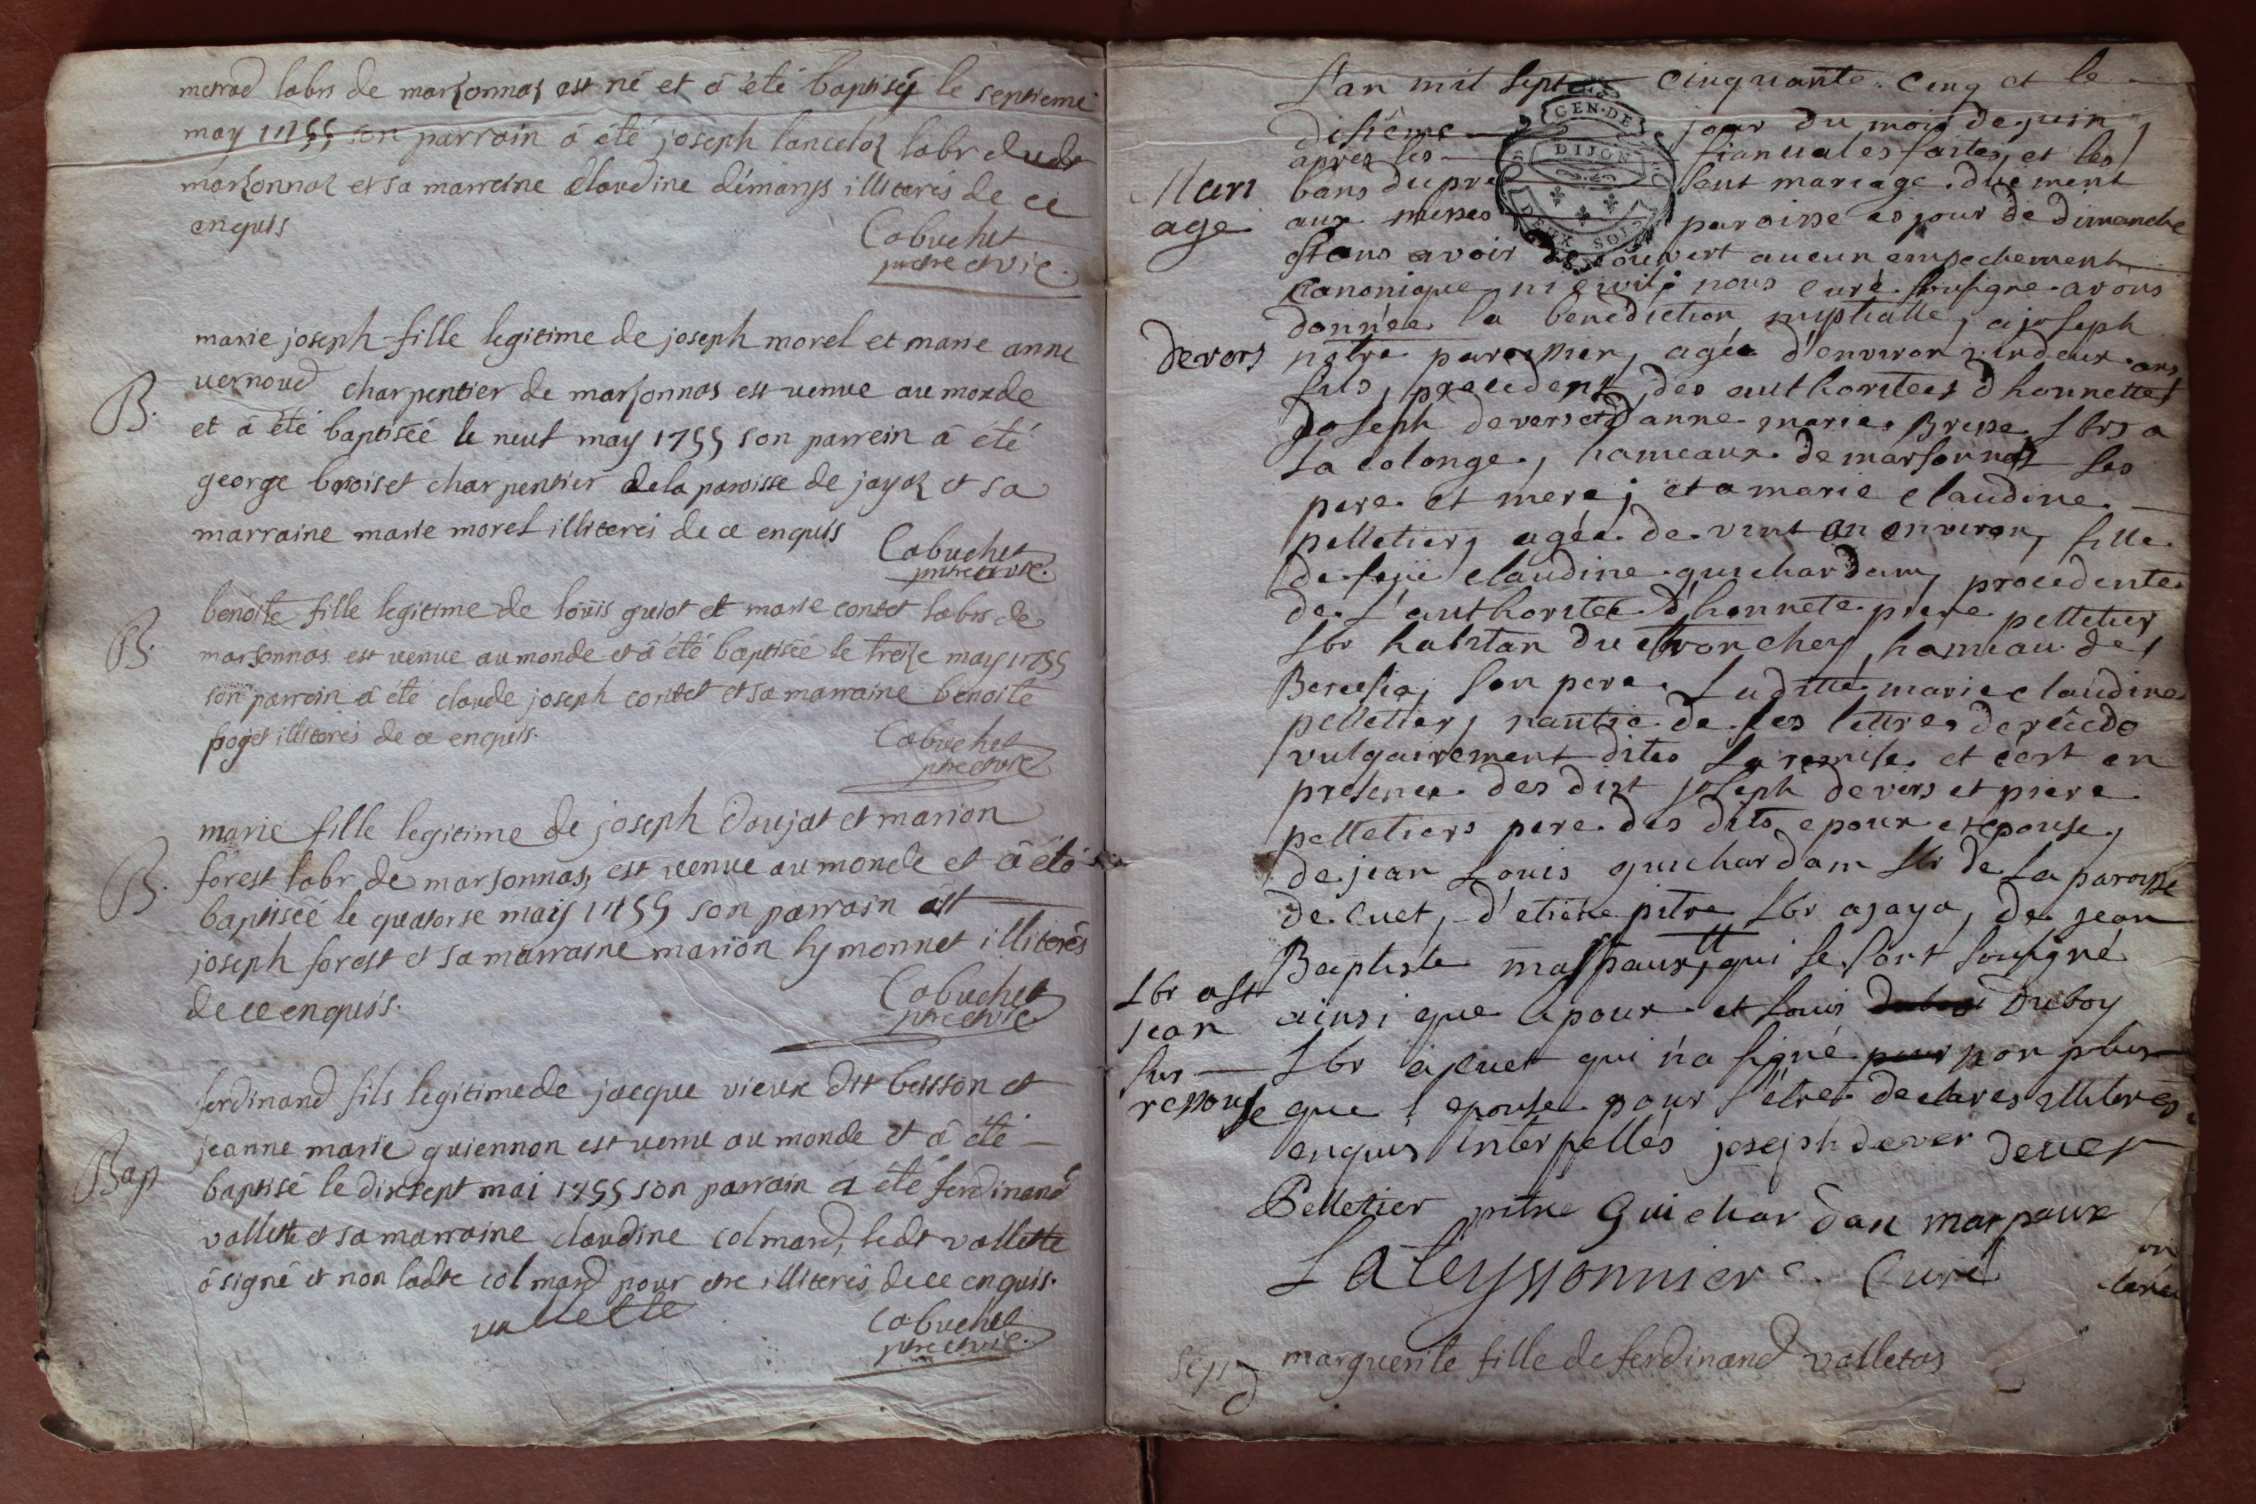 metrad labrs de marsonnas est né et à été baptisé le septieme
may 1755 son parrain à été joseph lancelot labr dudt
marsonnas et sa marreine Claudine démangs illiterés de ce
enquis
Cabuchet
pretre et vic.
marie joseph fille legitime de joseph morel et marie anne
vernoud charpentier de marsonnas est venue au monde
B. et à été baptiséé le neuf may 1755 son parrein à été
george boisset charpentier de la paroisse de jayat et sa
marraine marie morel illiterés de ce enquis
Cabuchet
pretre et vic.
benoite fille legitime de loüis guiot et marie contet labrs de
B. marsonnas est venue au monde et à été baptiséé le treize may 1755
son parrain à été claude joseph contet et sa marraine benoite
poget illiterés de ce enquis.
Cabuchet
ptre et vic.
marie fille legitime de joseph Doujat et marion
B. forest labr de marsonnas est venue au monde et à été
baptiséé le quatorse maiy 1755 son parrain est
joseph forest et sa marraine marion hymonnet illiterés
de ce enquis.
Cabuchet
ptre et vic.
ferdinand fils legitime de jacque vieux dit buisson et
jeanne marie guiennon est venu au monde et à été
Bap baptisé le dixsept mai 1755 son parrain à été ferdinand
vallette et sa marraine claudine colmard, ledt vallette
à signé et non ladte colmard pour etre illiterés de ce enquis.
vallette
Cabuchet
ptre et vic.
L'an mil sept cinquante cinq et le
disiéme jour du mois de juin
GEN. DE
DIJON
DEUX SOLS
apres les fiancialles faites, et les
Mari bans du pre sent mariage duement
age aux messes paroisse es jour de dimanche
sans avoir decouvert aucun empechement
canonique ni civil; nous curé soussigné avons
donnée la benediction nuptialle, a joseph
devers nôtre paroissien, agée d'environ vindeux ans
fils, procedent des authoritées d'honnettes
Joseph devers et d'anne marie Bresse Lbrs a
la colonge, hameaux de marsonnas ses
pere et mere; et a marie claudine
pelletier, agée de vint an environ, fille
de feüe claudine guichardan, procedente
de l'authoritée d'honnete piere pelletier
Lbr habitan du tronchey, hameau de
Beresia, son pere. Laditte marie claudine
pelletier, nantie de ses lettres de récedo
vulgairement dites la remise et c'est en
presence des dist joseph devers et piere
pelletiers pere des dits epoux et epouse,
de jean Louis guichardan Lbr de La paroisse
de Cuet, d'etiene pitre Lbr a jaya, de jean
Baptiste maspaux, qui se sont soussigné
Lbr a St
jean
sur
ressouse
ainsi que l'epoux et Louis Duboy
Lbr a cuet qui n'a signé non plus
que l'epouse pour s'étre declarés illiterés
enquis interpellés joseph dever Dever
Pelletier pitre Guichardan marpaux
Lateyssonniere Curé
marguerite fille de ferdinand valletas